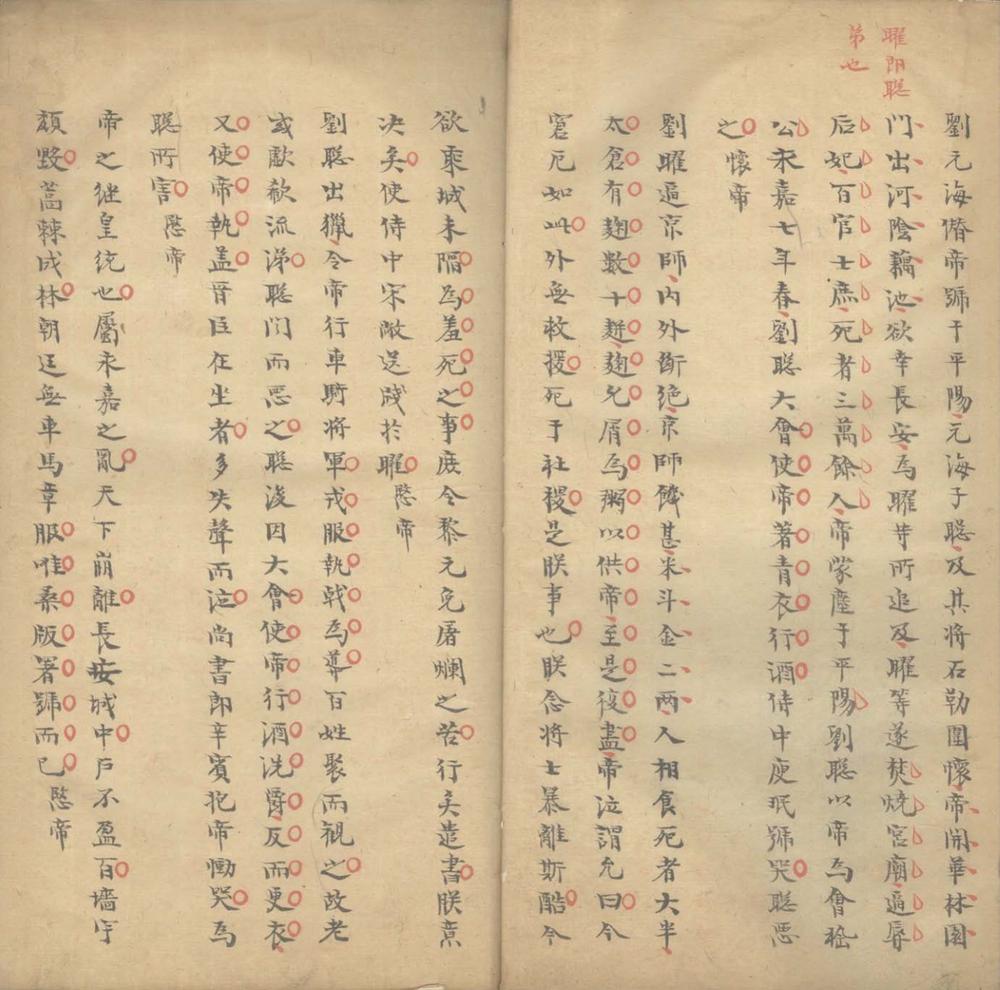 曜即聡
第也
劉元海僭帝號于平陽元海子聡及其将石勒圍懐帝開華林園
門出河陰藕池欲幸長安為曜等所追及曜等遂焚焼宮廟逼辱
后妃百官士庶死者三萬餘人帝蒙塵于平陽劉聡以帝為會稽
公永嘉七年春劉聡大會使帝著青衣行酒侍中庾珉號哭聡惡
之懐帝
劉曜逼京師内外断絶京師饑甚米斗金二两人相食死者大半
太倉有麹数十麹允屑為粥以供帝至是復盡帝泣謂允曰今
窘厄如此外無救援死于社稷是朕事也朕念将士暴離斯酷今
欲乗城未陥為羞死之事庶令黎元免屠爛之苦行矣遣書朕意
决矣使侍中宋敞送牋於曜愍帝
劉聡出獵令帝行車騎将軍戎服執戟為導百姓聚而観之故老
或歔欷流涕聡聞而惡之聡後因大會使帝行酒洗爵反而更衣
又使帝執盖晋臣在坐者多失聲而泣尚書郎辛賓抱帝慟哭為
聡所害愍帝
帝之継皇統也屬永嘉之亂天下崩離長安城中戸不盈百墻宇
頽毀蒿棘成林朝廷無車馬章服唯桑版署號而已愍帝